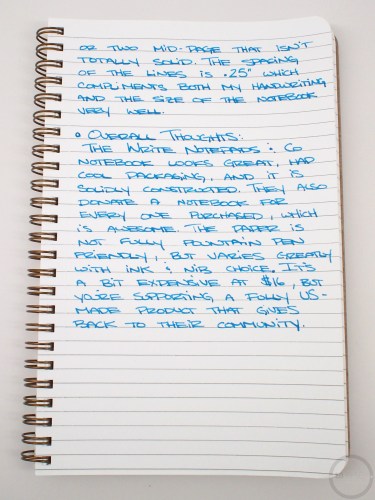 OR TWO MID-PAGE THAT ISN'T
TOTALLY SOLID. THE SPACING
OF THE LINES IS .25" WHICH
COMPLIMENTS BOTH MY HANDWRITING
AND THE SIZE OF THE NOTEBOOK
VERY WELL.
• OVERALL THOUGHTS:
THE WRITE NOTEPADS & CO
NOTEBOOK LOOKS GREAT, HAD
COOL PACKAGING, AND IT IS
SOLIDLY CONSTRUCTED. THEY ALSO
DONATE A NOTEBOOK FOR
EVERY ONE PURCHASED, WHICH
IS AWESOME. THE PAPER IS
NOT FULLY FOUNTAIN PEN
FRIENDLY, BUT VARIES GREATLY
WITH INK & NIB CHOICE. IT'S
A BIT EXPENSIVE AT $16, BUT
YOU'RE SUPPORTING A FULLY US-
MADE PRODUCT THAT GIVES
BACK TO THEIR COMMUNITY.